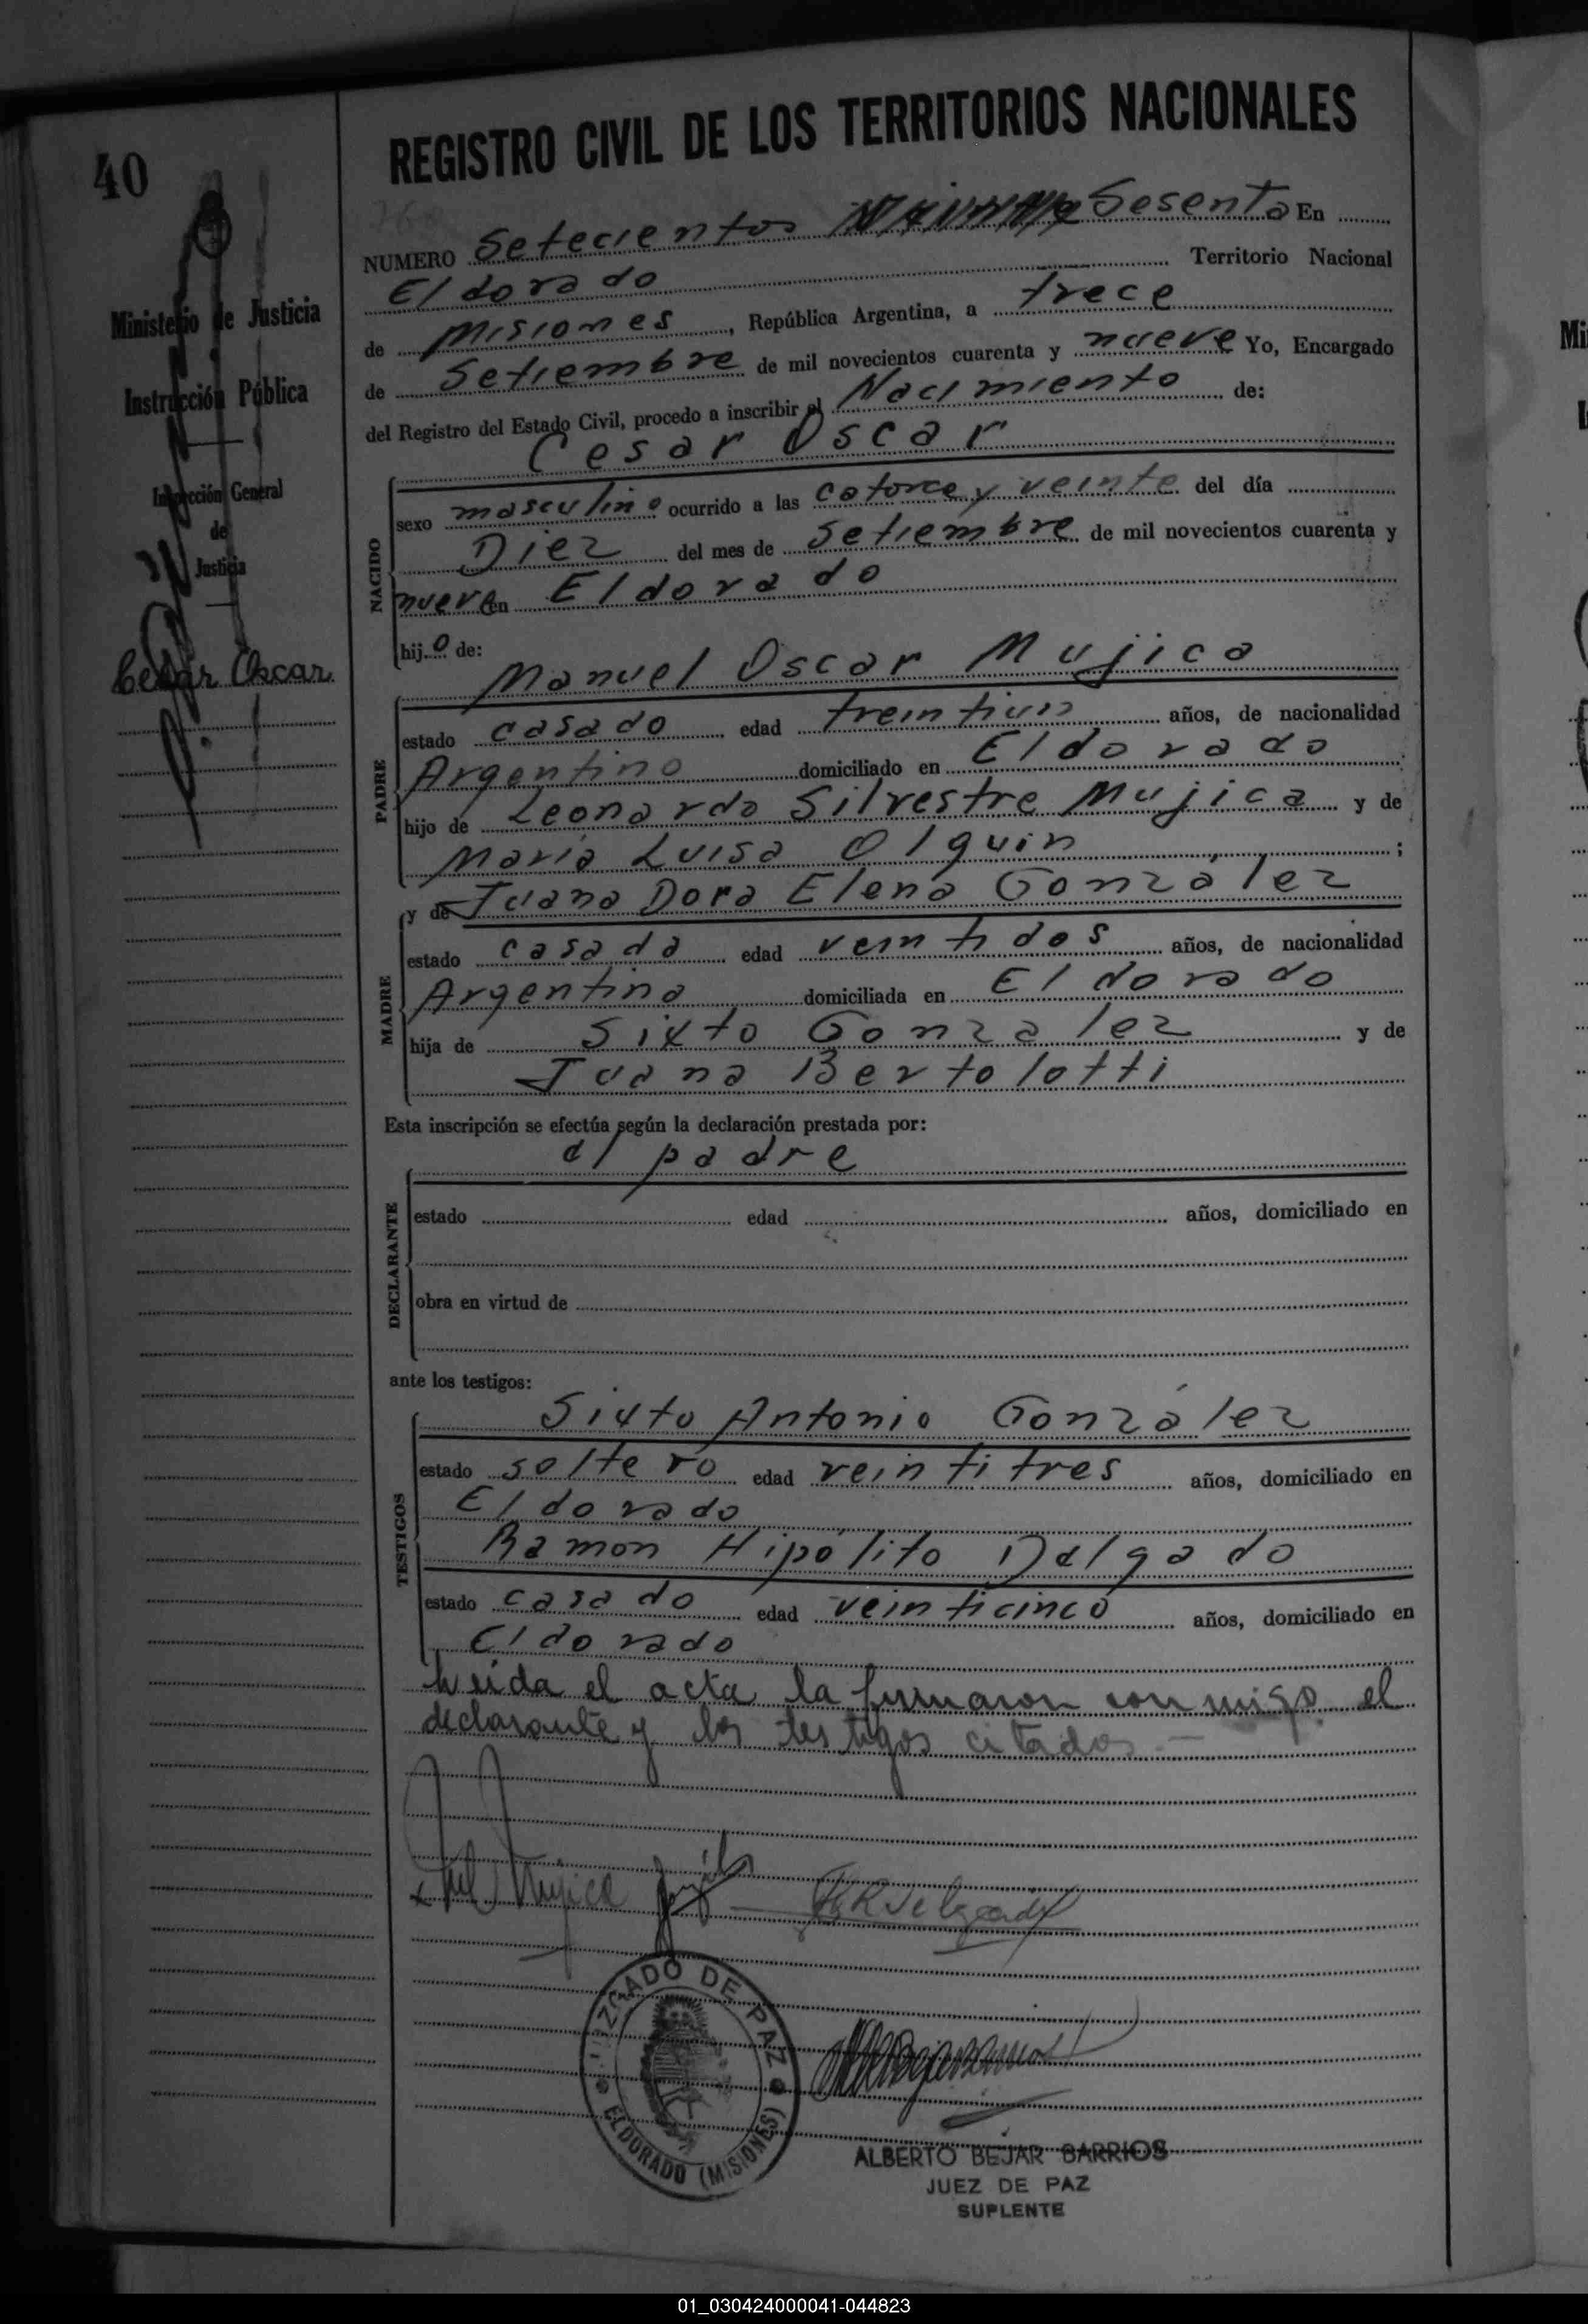 40
Ministerio de Justicia
Instrucción Pública
Inspección General
de
Justicia
Cesar Oscar
REGISTRO CIVIL DE LOS TERRITORIOS NACIONALES
760
NUMERO Setecientos Sesenta En
Eldorado Territorio Nacional
de Misiones, República Argentina, a trece
de Setiembre de mil novecientos cuarenta y nueve Yo, Encargado
del Registro del Estado Civil, procedo a inscribir el Nacimiento de:
Cesar Oscar
NACIDO
sexo masculino ocurrido a las catorce y veinte del día
Diez del mes de Setiembre de mil novecientos cuarenta y
nueve en Eldorado
hijo de:
Manuel Oscar Mujica
PADRE
estado casado edad treintiun años, de nacionalidad
Argentino domiciliado en Eldorado
hijo de Leonardo Silvestre Mujica y de
María Luisa Olguin ;
y de Juana Dora Elena González
MADRE
estado casada edad veintidos años, de nacionalidad
Argentina domiciliada en Eldorado
hija de Sixto Gonzalez y de
Juana Bertolotti
Esta inscripción se efectúa según la declaración prestada por:
el padre
DECLARANTE
estado edad años, domiciliado en
obra en virtud de
ante los testigos:
Sixto Antonio González
TESTIGOS
estado soltero edad veintitres años, domiciliado en
Eldorado
Ramon Hipólito Delgado
estado casado edad veinticinco años, domiciliado en
Eldorado
Leida el acta la firmaron con migo el
declarante y los testigos citados.—
Mujica
HRDelgado
JUZGADO DE PAZ
ELDORADO (MISIONES)
ALBERTO BEJAR BARRIOS
JUEZ DE PAZ
SUPLENTE
01_030424000041-044823